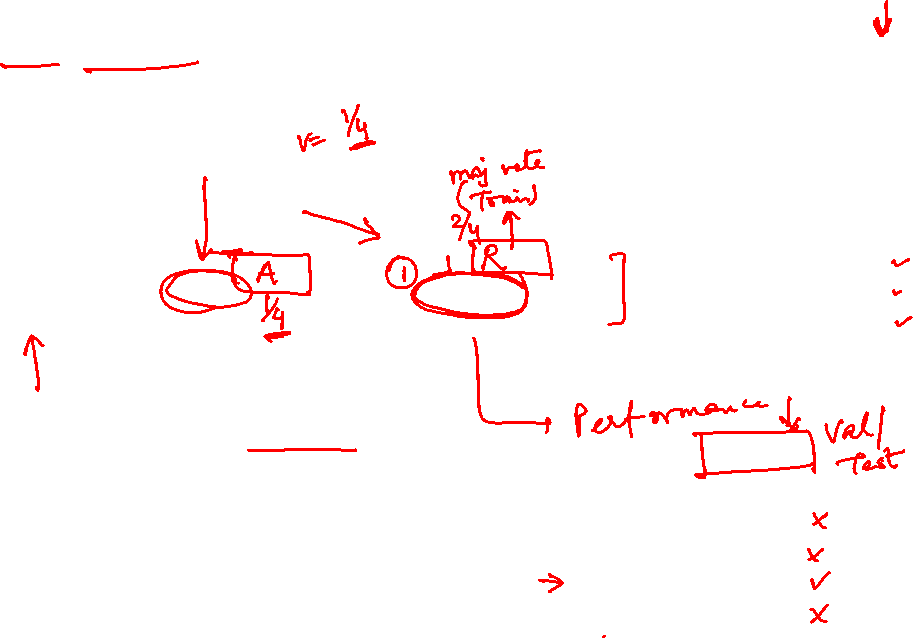 v= 1/4
maj vote
(Train)
2/4
A
R
1
1/4
Performance
Val/
Test